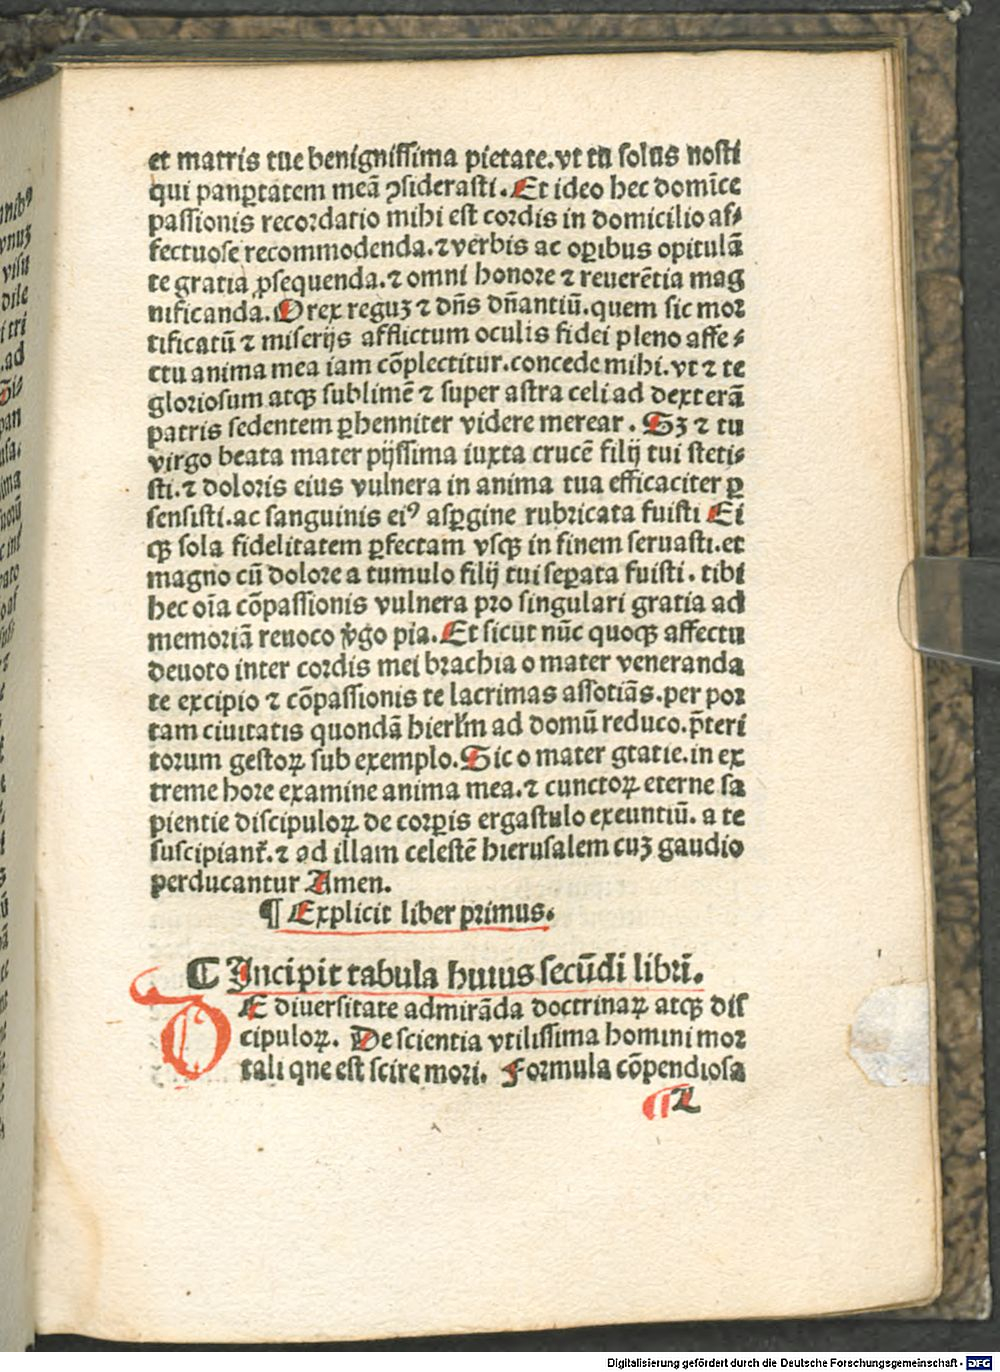 et matris tue benignissima pietate.vt tu solus nosti
qui paupertatem meā ꝯsiderasti.Et ideo hec domīce
passionis recordatio mihi est cordis in domicilio af⸗
fectuose recommodenda.⁊ verbis ac oꝑibus opitulā
te gratia ꝓsequenda.⁊ omni honore ⁊ reuerētia mag
nificanda.O rex reguꝫ ⁊ dn̄s dn̄antiū.quem sic mor
tificatū ⁊ miserijs afflictum oculis fidei pleno affe⸗
ctu anima mea iam cōplectitur.concede mihi.vt ⁊ te
gloriosum atqꝫ sublimē ⁊ super astra celi ad dexterā
patris sedentem ꝑhenniter videre merear. Sꝫ ⁊ tu
virgo beata mater pijssima iuxta crucē filij tui steti⸗
sti.⁊ doloris eius vulnera in anima tua efficaciter ꝑ
sensisti.ac sanguinis eiꝰ asꝑgine rubricata fuisti Ei
qꝫ sola fidelitatem ꝑfectam vsqꝫ in finem seruasti.et
magno cū dolore a tumulo filij tui seꝑata fuisti. tibi
hec oīa cōpassionis vulnera pro singulari gratia ad
memoriā reuoco v̄go pia.Et sicut nūc quoqꝫ affectu
deuoto inter cordis mei brachia o mater veneranda
te excipio ⁊ cōpassionis te lacrimas assotiās.per por
tam ciuitatis quondā hierlm̄ ad domū reduco.p̄teri
torum gestoꝝ sub exemplo.Sic o mater gratie.in ex
treme hore examine anima mea.⁊ cunctoꝝ eterne sa
pientie discipuloꝝ de corꝑis ergastulo exeuntiū. a te
suscipiant̄.⁊ ad illam celestē hierusalem cuꝫ gaudio
perducantur Amen.
¶ Explicit liber primus.
¶ Incipit tabula huius secūdi libri.
DE diuersitate admirāda doctrinaꝝ atqꝫ dis
cipuloꝝ. De scientia vtilissima homini mor
tali que est scire mori. Formula cōpendiosa
¶ Z
mnibꝰ
vnuꝫ
visit
dile
i tri
.ad
Di⸗
pan
usa.
ima
Digitalisierung gefördert durch die Deutsche Forschungsgemeinschaft - DFG